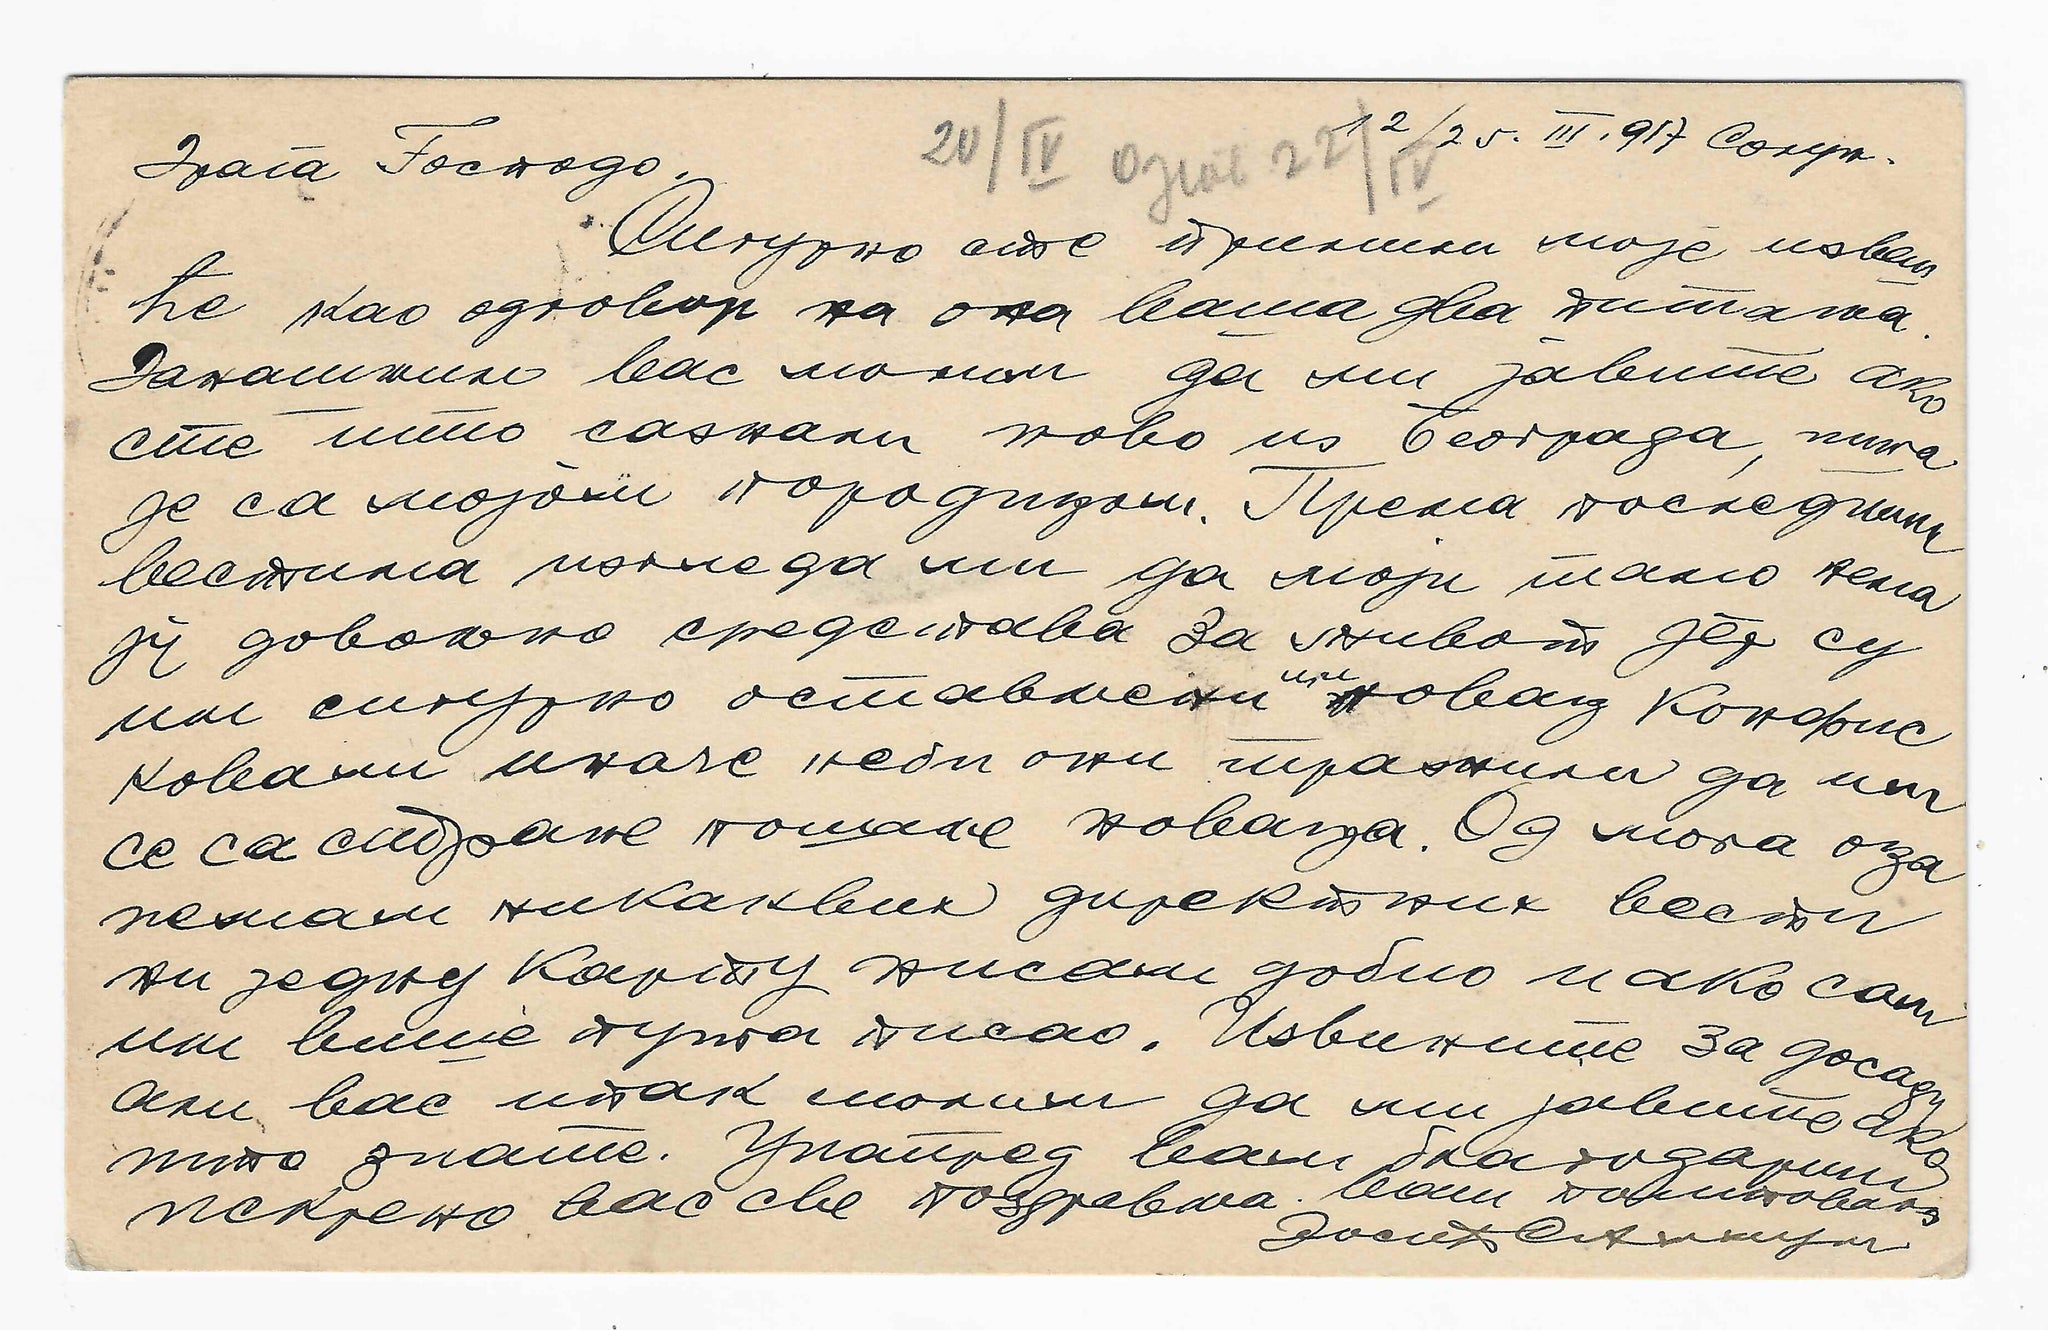 20/IV Одг 22/IV
12/25. III. 917 Солун.
Драга Господо,
Сигурно сте примили моје извеш
ће као одговор на она ваша два питања.
Данашњим вас молим да ми јавите ако
сте што сазнали ново из Београда, шта
је са мојом породицом. Према последњим
вестима изгледа ми да моји тамо нема
ју довољно средстава за живот јер су
им сигурно остављени им новац конфис
ковали иначе неби они тражили да им
се са стране пошаље новаца. Од мога оца
немам никаквих директних вести
ни једну карту нисам добио и ако сам
им више пута писао. Извините за досаду
али вас ипак молим да ми јавите ако
што знате. Унапред вам благодарим
искрено вас све поздравља ваш поштовалац
Јосип